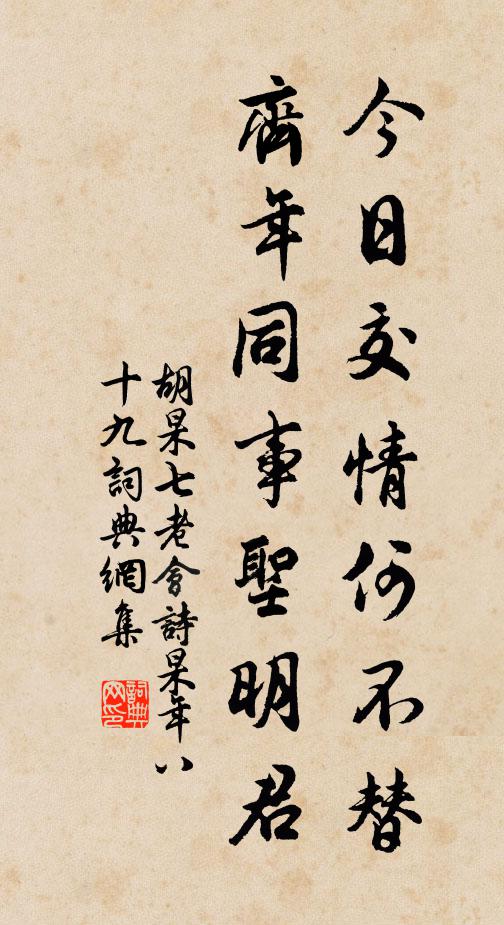 今日交情何不替
齊年同事聖明君
胡杲七老會詩杲年八
十九詞典網集
詞典
网印